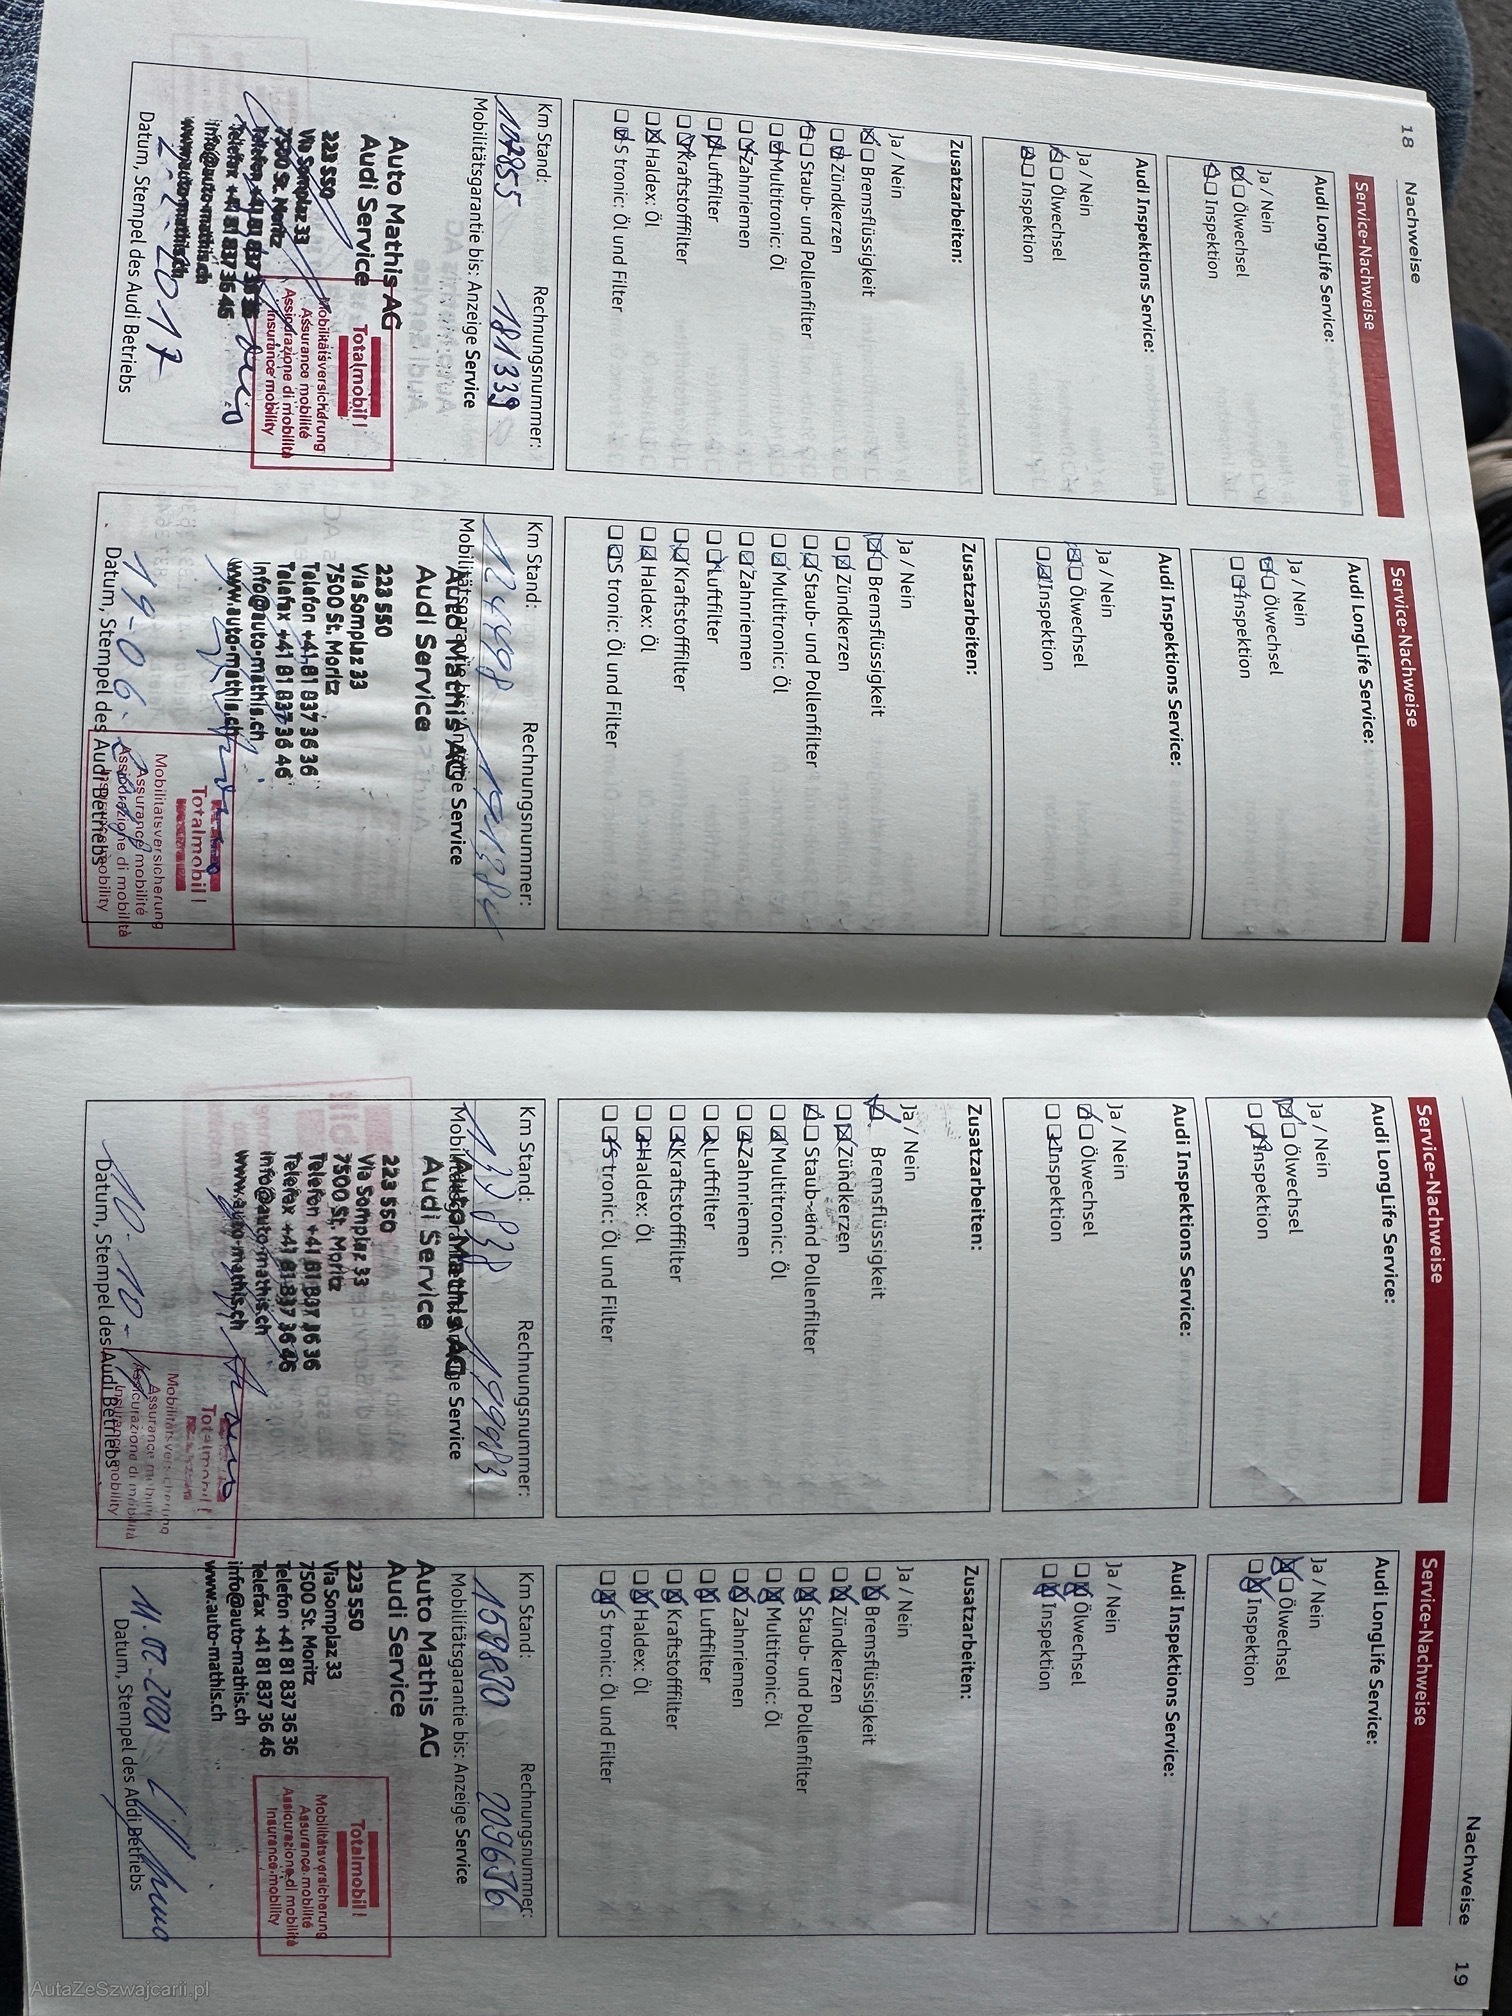 18
Nachweise
Service-Nachweise
Audi LongLife Service:
Ja / Nein
Ölwechsel
Inspektion
Audi Inspektions Service:
Ja / Nein
Ölwechsel
Inspektion
Zusatzarbeiten:
Ja / Nein
Bremsflüssigkeit
Zündkerzen
Staub- und Pollenfilter
Multitronic: Öl
Zahnriemen
Luftfilter
Kraftstofffilter
Haldex: Öl
S tronic: Öl und Filter
Km Stand:
Rechnungsnummer:
107855
181339
Mobilitätsgarantie bis: Anzeige Service
Auto Mathis AG
Audi Service
223 550
Via Somplaz 33
7500 St. Moritz
info@auto-mathis.ch
www.auto-mathis.ch
Totalmobil!
Mobilitätsversicherung
Assurance mobilité
Assicurazione di mobilità
Insurance mobility
2017
Datum, Stempel des Audi Betriebs
Service-Nachweise
Audi LongLife Service:
Ja / Nein
Ölwechsel
Inspektion
Audi Inspektions Service:
Ja / Nein
Ölwechsel
Inspektion
Zusatzarbeiten:
Ja / Nein
Bremsflüssigkeit
Zündkerzen
Staub- und Pollenfilter
Multitronic: Öl
Zahnriemen
Luftfilter
Kraftstofffilter
Haldex: Öl
S tronic: Öl und Filter
Km Stand:
Rechnungsnummer:
124498
Mobilitätsgarantie bis: Anzeige Service
Auto Mathis AG
Audi Service
223 550
Via Somplaz 33
7500 St. Moritz
Telefon +41 81 837 36 36
Telefax +41 81 837 36 46
info@auto-mathis.ch
www.auto-mathis.ch
Totalmobil!
Mobilitätsversicherung
Assurance mobilité
Assicurazione di mobilità
Insurance mobility
19-06-
Datum, Stempel des Audi Betriebs
Nachweise
19
Service-Nachweise
Audi LongLife Service:
Ja / Nein
Ölwechsel
Inspektion
Audi Inspektions Service:
Ja / Nein
Ölwechsel
Inspektion
Zusatzarbeiten:
Ja / Nein
Bremsflüssigkeit
Zündkerzen
Staub- und Pollenfilter
Multitronic: Öl
Zahnriemen
Luftfilter
Kraftstofffilter
Haldex: Öl
S tronic: Öl und Filter
Km Stand:
Rechnungsnummer:
199983
Mobilitätsgarantie bis: Anzeige Service
Auto Mathis AG
Audi Service
223 550
Via Somplaz 33
7500 St. Moritz
Telefon +41 81 837 36 36
Telefax +41 81 837 36 46
info@auto-mathis.ch
www.auto-mathis.ch
Totalmobil!
Mobilitätsversicherung
Assurance mobilité
Assicurazione di mobilità
Insurance mobility
10-10-
Datum, Stempel des Audi Betriebs
Service-Nachweise
Audi LongLife Service:
Ja / Nein
Ölwechsel
Inspektion
Audi Inspektions Service:
Ja / Nein
Ölwechsel
Inspektion
Zusatzarbeiten:
Ja / Nein
Bremsflüssigkeit
Zündkerzen
Staub- und Pollenfilter
Multitronic: Öl
Zahnriemen
Luftfilter
Kraftstofffilter
Haldex: Öl
S tronic: Öl und Filter
Km Stand:
Rechnungsnummer:
159890
209656
Mobilitätsgarantie bis: Anzeige Service
Auto Mathis AG
Audi Service
223 550
Via Somplaz 33
7500 St. Moritz
Telefon +41 81 837 36 36
Telefax +41 81 837 36 46
info@auto-mathis.ch
www.auto-mathis.ch
Totalmobil!
Mobilitätsversicherung
Assurance mobilité
Assicurazione di mobilità
Insurance mobility
11.02-2021
Datum, Stempel des Audi Betriebs
AutaZeSzwajcarii.pl